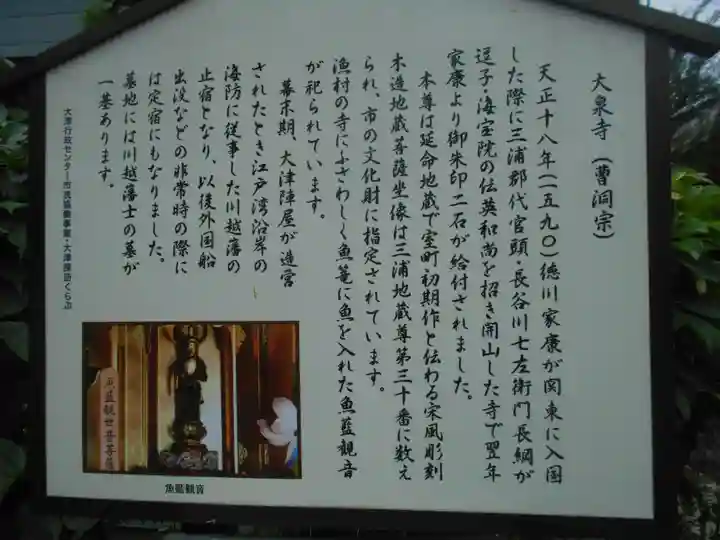 大泉寺（曹洞宗）
天正十八年（一五九〇）徳川家康が関東に入国
した際に三浦郡代官頭・長谷川七左衛門長綱が
逗子・海宝院の伝英和尚を招き開山した寺で翌年
家康より御朱印二石が給付されました。
本尊は延命地蔵で室町初期作と伝わる宋風彫刻
木造地蔵菩薩坐像は三浦地蔵尊第三十番に数え
られ、市の文化財に指定されています。
漁村の寺にふさわしく魚篭に魚を入れた魚藍観音
が祀られています。
幕末期、大津陣屋が造営
されたとき江戸湾沿岸の
海防に従事した川越藩の
止宿となり、以後外国船
出没などの非常時の際に
は定宿にもなりました。
墓地には川越藩士の墓が
一基あります。
大津行政センター市民協働事業・大津探訪くらぶ
魚藍観世音菩薩
魚藍観音